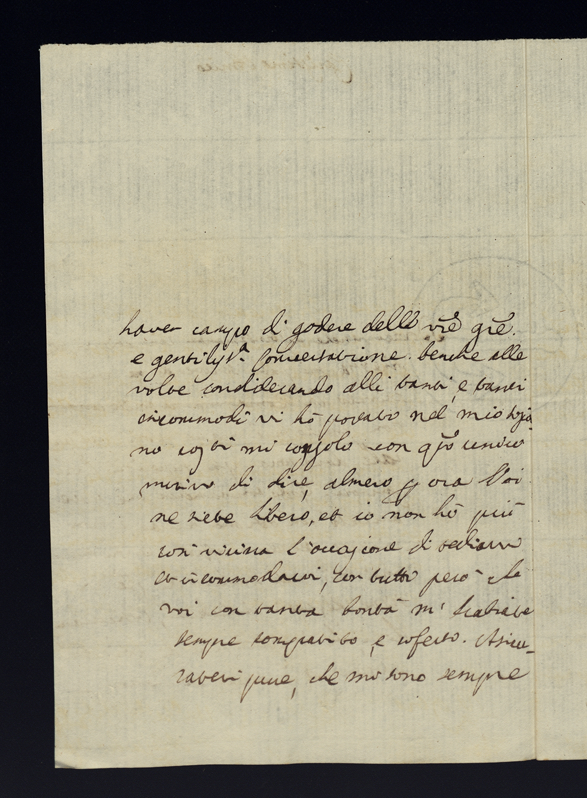 haver campo di godere delle vr̃e gr̃e.
e gentiliss.ᵃ Conversatione. benche alle
volte considerando alli tanti, e tanti
incommodi vi hò portato nel mio sogior
no costi mi consolo con qsto unico
motivo di dire, almeno p ora Voi
ne siete libero, et io non hò più
così vicina l'occasione di tediarvi
et incommodarvi, con tutto però che
voi con tanta bontà m'habiate
sempre compatito, e sofferto. Assicu-
ratevi pure, che mi sono sempre